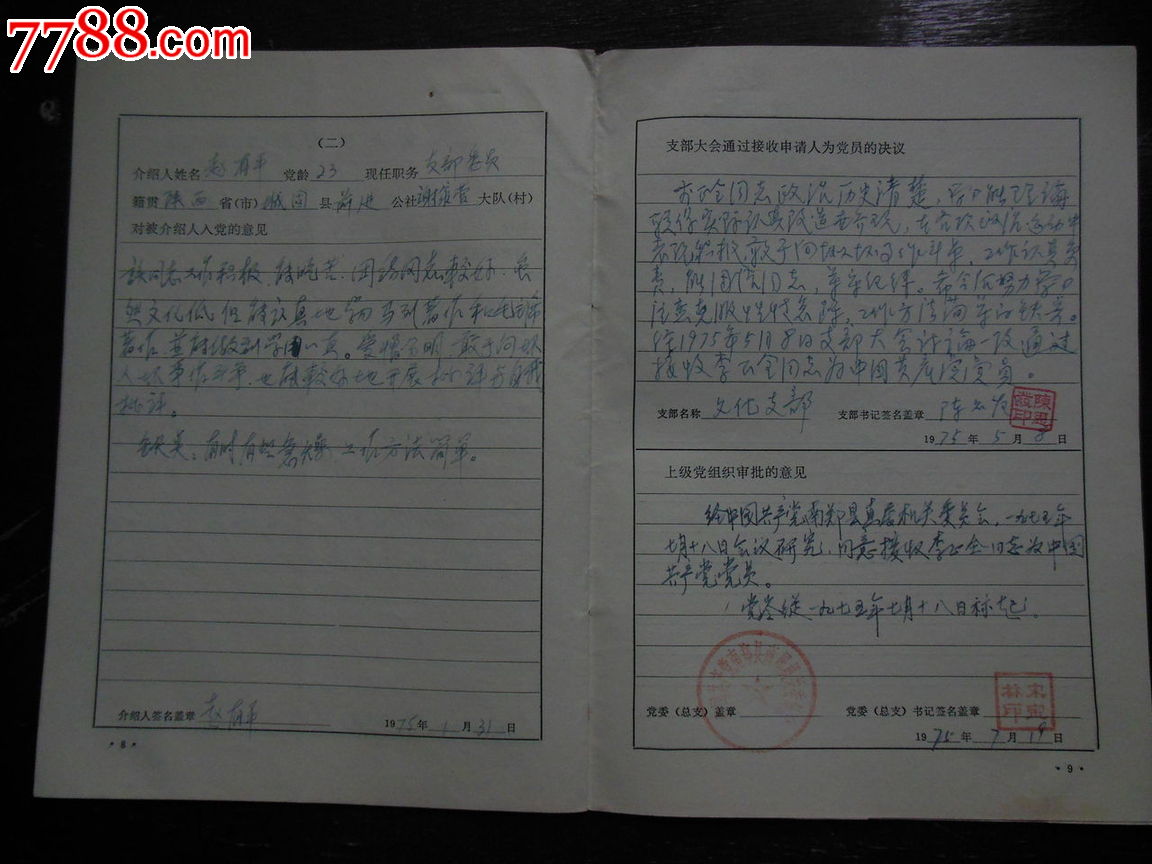 7788.com
(二)
介绍人姓名 赵有平 党龄 23 现任职务 支部委员
籍贯 陕西 省(市) 城固 县 前进 公社 谢排营 大队(村)
对被介绍人入党的意见
该同志工作积极,能吃苦,团结同志较好,虽
然文化低但能认真地学习马列著作和毛主席
著作,并能做到学用一真。爱憎分明,敢于向坏
人坏事作斗争,也能较好地开展批评与自我
批评。
缺点:有时有些急燥,工作方法简单。
介绍人签名盖章 赵有平 1975年 1月31日
·8·
支部大会通过接收申请人为党员的决议
同志政治历史清楚,
联系实际认真改造世界观,在各次政治运动中
表现积极,敢于同坏人坏事作斗争,工作认真负
责,能团结同志,遵守纪律。希今后努力学习
注意克服性情急躁,工作方法简单的缺点。
经1975年5月8日支部大会讨论一致通过
接收李正全同志为中国共产党党员。
支部名称 文化支部 支部书记签名盖章
1975年5月8日
上级党组织审批的意见
经中国共产党南郑县直属机关委员会,一九七五年
七月十八日会议研究,同意接收李正全同志为中国
共产党党员。
党龄从一九七五年七月十八日标起。
党委(总支)盖章 党委(总支)书记签名盖章
1975年7月19日
·9·